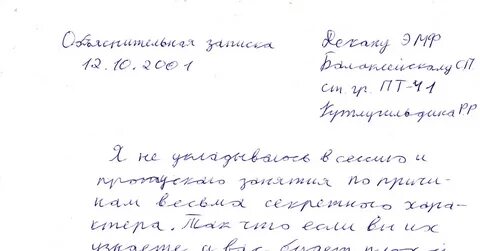 Объяснительная записка
12.10.2001
Декану ЭМФ
Балаклейскому СП
ст. гр. ПТ-41
Кутлугильдина Р.Р
Я не укладываюсь в сессию и
пропускаю занятия по причи-
нам весьма секретного хара-
ктера. Так что если вы их
узнаете, у вас будет